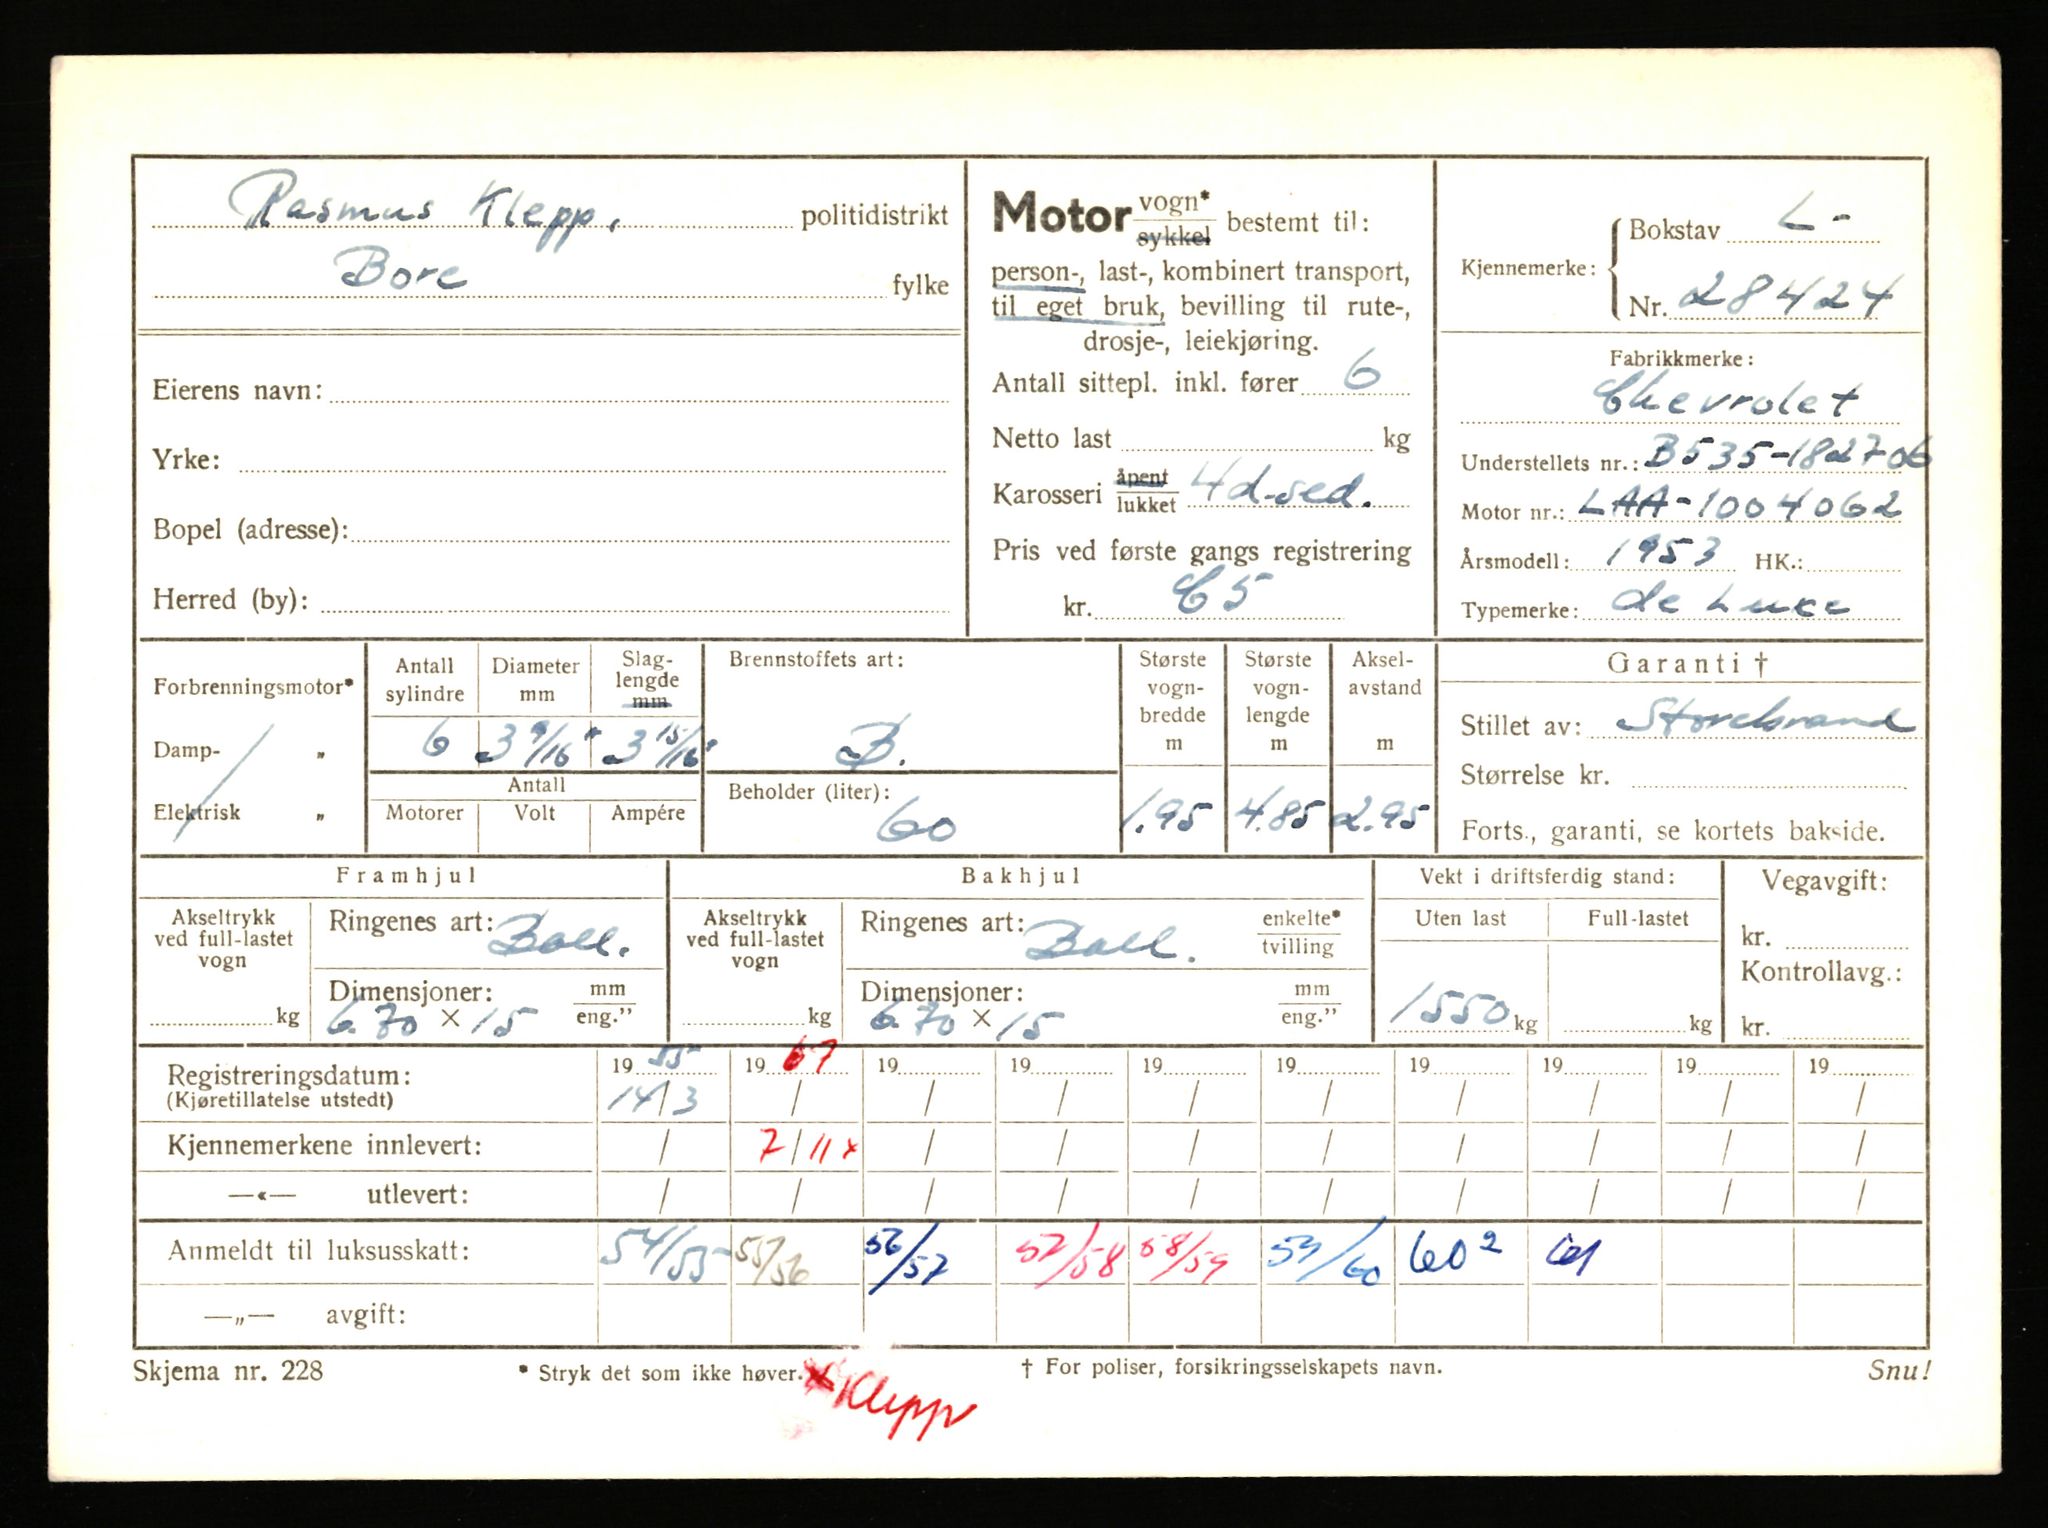 Rasmus Klepp, politidistrikt
Bore fylke
Eierens navn:
Yrke:
Bopel (adresse):
Herred (by):
Motor vogn* sykkel bestemt til:
person-, last-, kombinert transport,
til eget bruk, bevilling til rute-,
drosje-, leiekjøring.
Antall sittepl. inkl. fører 6
Netto last kg
Karosseri åpent lukket 4d-sed.
Pris ved første gangs registrering
kr. C5
Kjennemerke: Bokstav L-
Nr. 28424
Fabrikkmerke:
Chevrolet
Understellets nr.: B535-182706
Motor nr.: LAA-1004062
Årsmodell: 1953 HK.:
Typemerke: de Luxe
Forbrenningsmotor*
Damp- „
Elektrisk „
Antall sylindre
6
Diameter mm
3 9/16"
Slag-lengde mm
3 15/16"
Antall
Motorer Volt Ampére
Brennstoffets art:
B.
Beholder (liter):
60
Største vogn-bredde m
1.95
Største vogn-lengde m
4.85
Aksel-avstand m
2.95
Garanti †
Stillet av: Storebrand
Størrelse kr.
Forts., garanti, se kortets bakside.
Framhjul
Akseltrykk ved full-lastet vogn
kg
Ringenes art: Ball.
Dimensjoner: mm eng."
6.70 × 15
Bakhjul
Akseltrykk ved full-lastet vogn
kg
Ringenes art: Ball. enkelte* tvilling
Dimensjoner: mm eng."
6.70 × 15
Vekt i driftsferdig stand:
Uten last Full-lastet
1550 kg kg
Vegavgift:
kr.
Kontrollavg.:
kr.
19 55 19 67 19 19 19 19 19 19 19 19
Registreringsdatum:
(Kjøretillatelse utstedt) 14/3 / / / / / / / / /
Kjennemerkene innlevert: / 7/11 x / / / / / / / /
—«— utlevert: / / / / / / / / / /
Anmeldt til luksusskatt: 54/55 55/56 56/57 57/58 58/59 59/60 60² 61
—„— avgift:
Skjema nr. 228 * Stryk det som ikke høver. x Klepp † For poliser, forsikringsselskapets navn. Snu!